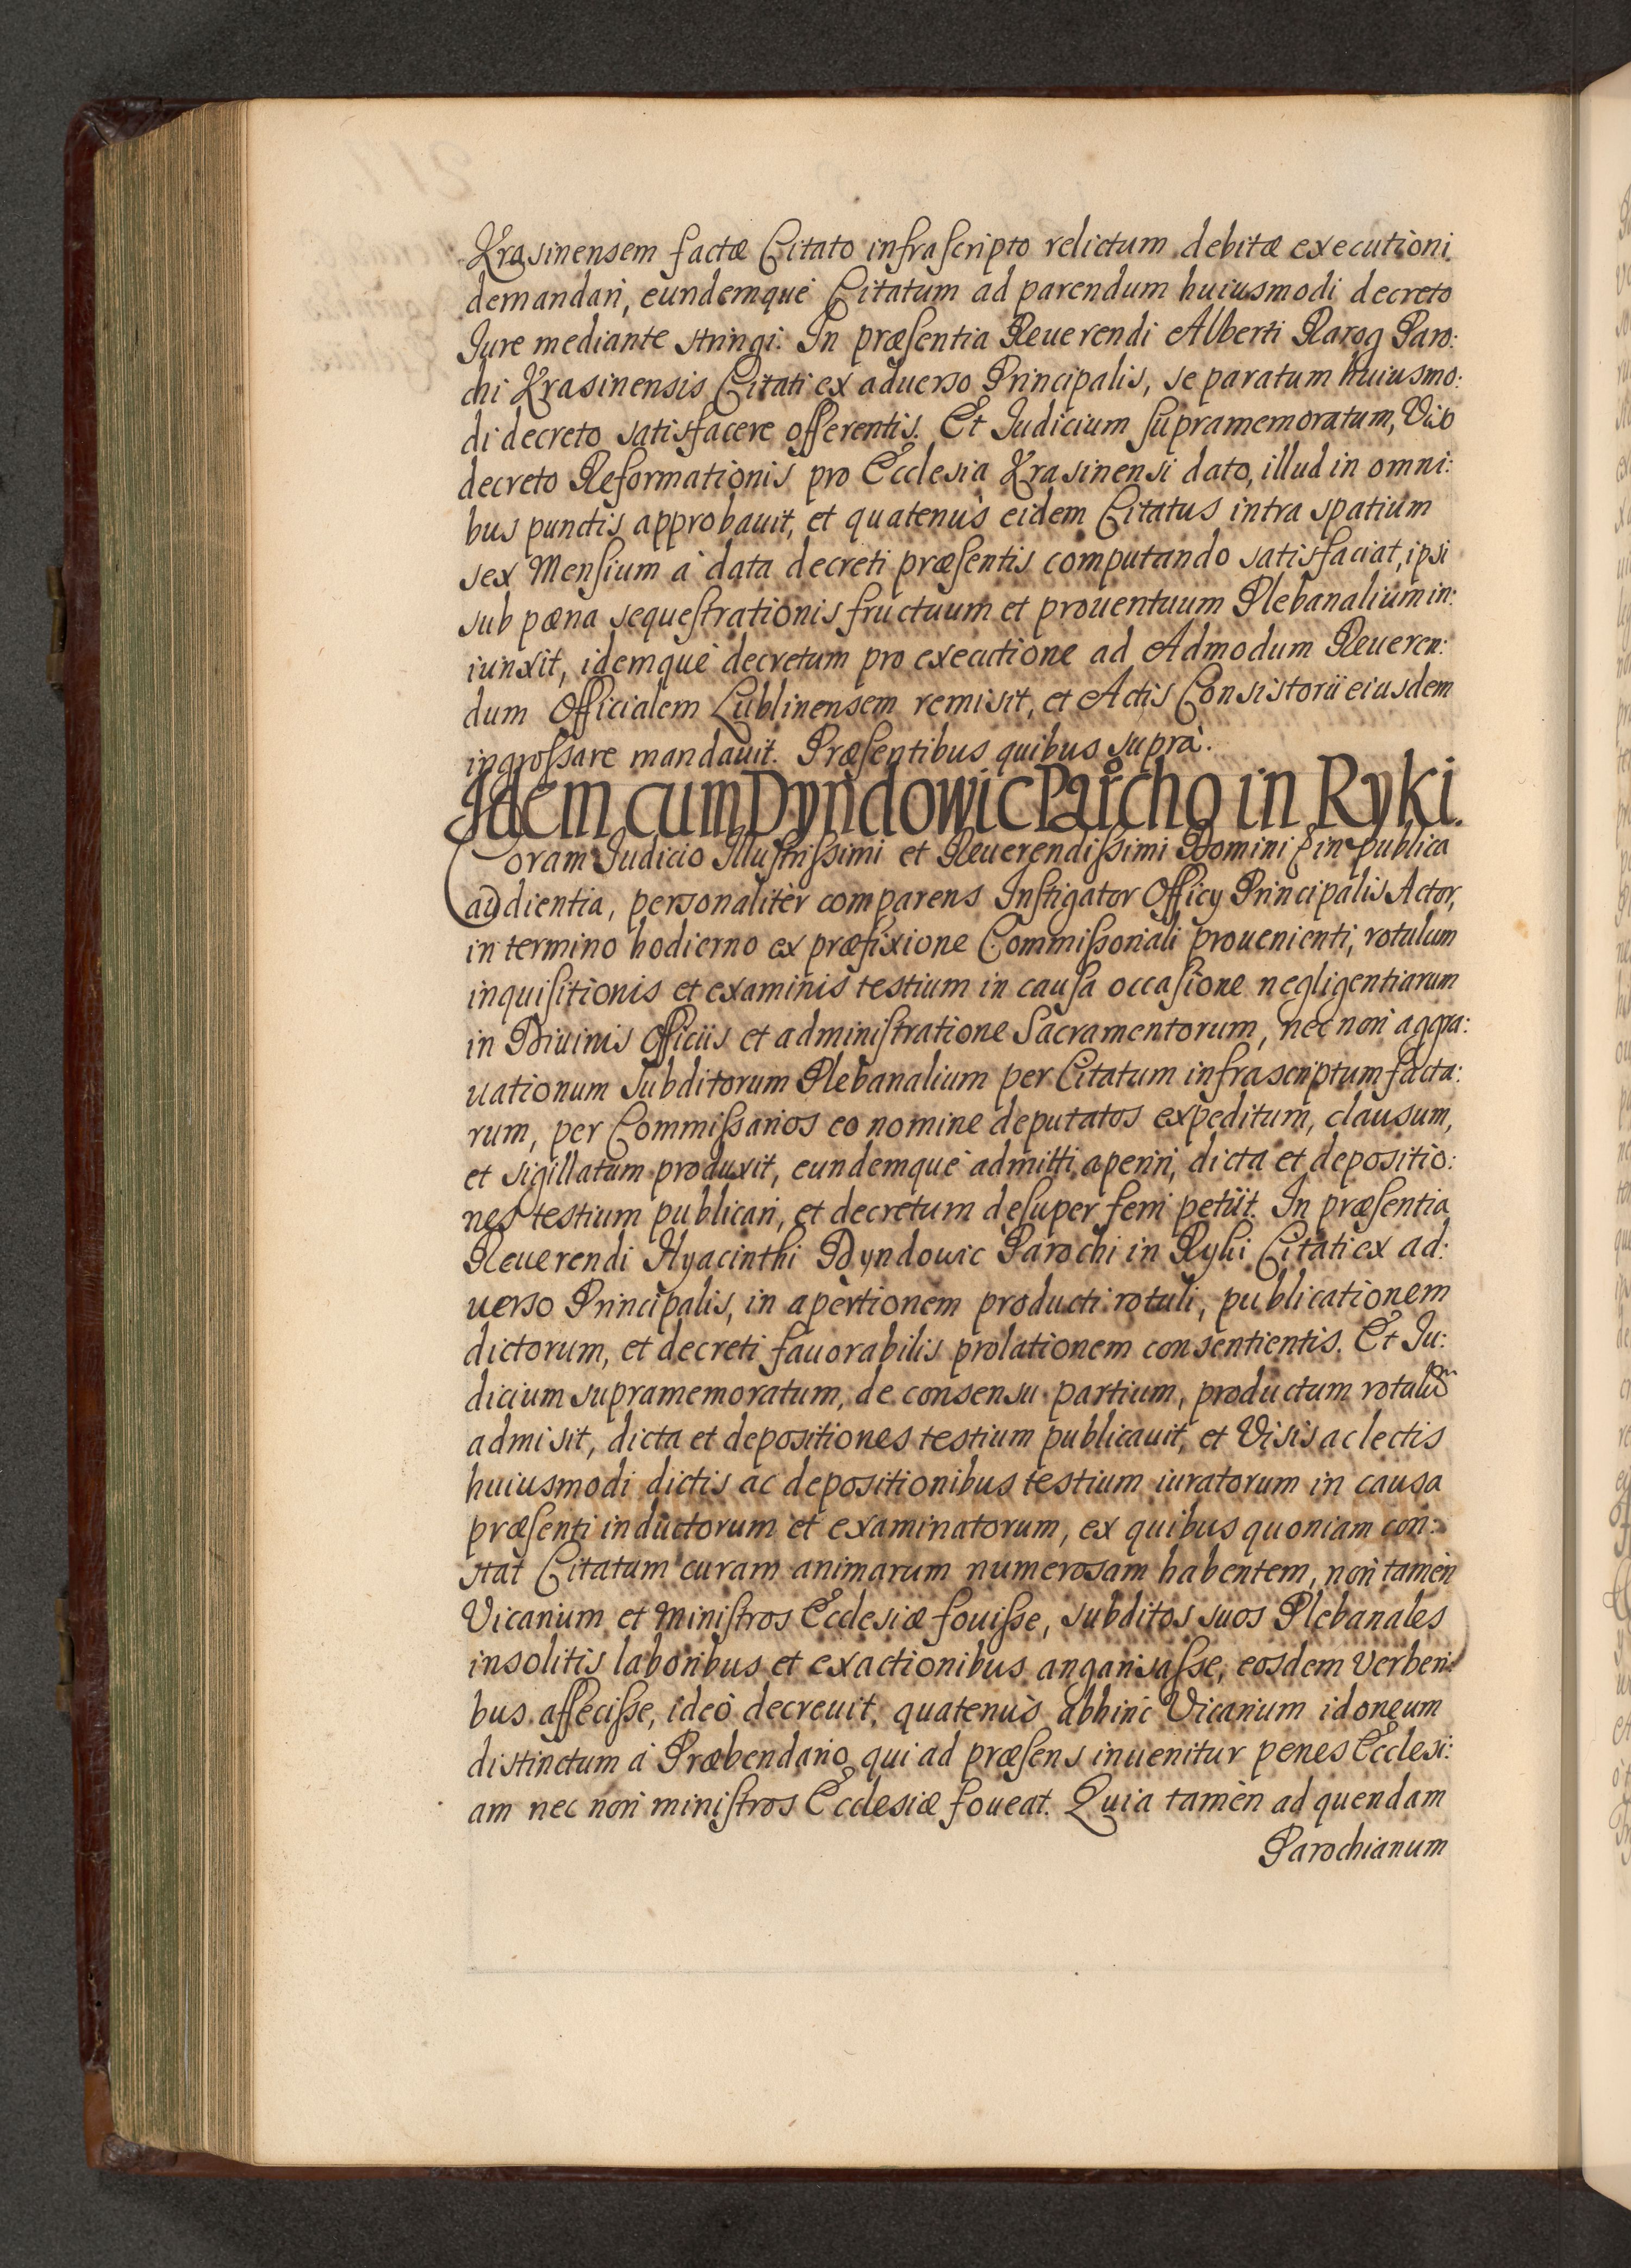 Krasinensem factæ Citato infrascripto relictum debitæ executioni
demandari, eundemquè Citatum ad parendum huiusmodi decreto
Iure mediante stringi. In præsentia Reuerendi Alberti Rarog Paro:
chi Krasinensis Citati ex aduerso Principalis, se paratum huiusmo:
di decreto satisfacere offerentis. Et Iudicium supramemoratum, Viso
decreto Reformationis pro Ecclesia Krasinensi dato, illud in omni:
bus punctis approbauit, et quatenùs eidem Citatus intra spatium
sex Mensium à data decreti præsentis computando satisfaciat, ipsi
sub pœna sequestrationis fructuum et prouentuum Plebanalium in:
iunxit, idemquè decretum pro executione ad Admodum Reueren:
dum Officialem Lublinensem remisit, et Actis Consistorii eiusdem
ingrossare mandauit. Præsentibus quibus suprà.
Idem cum Dyndowic Parocho in Ryki.
Coram Iudicio Illustrissimi et Reuerendissimi Domini in publica
audientia, personalitèr comparens Instigator Officy Principalis Actor,
in termino hodierno ex præfixione Commissoriali prouenienti, rotulum
inquisitionis et examinis testium in causa occasione negligentiarum
in Diuinis Officiis et administratione Sacramentorum, nec non aggra:
uationum Subditorum Plebanalium per Citatum infrascriptum facta:
rum, per Commissarios eo nomine deputatos expeditum, clausum,
et sigillatum produxit, eundemquè admitti aperiri, dicta et depositio:
nes testium publicari, et decretum desuper ferri petiit. In præsentia
Reuerendi Hyacinthi Dyndowic Parochi in Ryki Citati ex ad:
uerso Principalis, in apertionem producti rotuli, publicationem
dictorum, et decreti fauorabilis prolationem consentientis. Et Iu:
dicium supramemoratum, de consensu partium, productum rotulum
admisit, dicta et depositiones testium publicauit, et Visis ac lectis
huiusmodi dictis ac depositionibus testium iuratorum in causa
præsenti inductorum et examinatorum, ex quibus quoniam con:
stat Citatum curam animarum numerosam habentem, non tamen
Vicarium et Ministros Ecclesiæ fouisse, subditos suos Plebanales
insolitis laboribus et exactionibus angarisasse, eosdem Verberi:
bus affecisse, ideò decreuit, quatenùs abhinc Vicarium idoneum
distinctum à Præbendario qui ad præsens inuenitur penes Ecclesi:
am nec non ministros Ecclesiæ foueat. Quia tamèn ad quendam
Parochianum